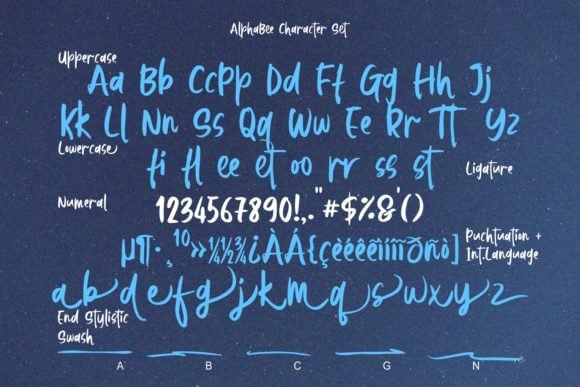 AlphaBee Character Set
Uppercase
Aa Bb CcPp Dd Ff Gg Hh Jj
Kk Ll Nn Ss Qq Ww Ee Rr Tt Yz
Lowercase
fi fl ee et oo rr ss st
Ligature
Numeral
1234567890!,."#$%&'()
µ¶·¸¹⁰»¼½¾¿ÀÁ{çèéêëìíîïðñò]
Puchtuation +
Int.Language
abdefgjkmqswxyz
End Stylistic
Swash
A B C G N